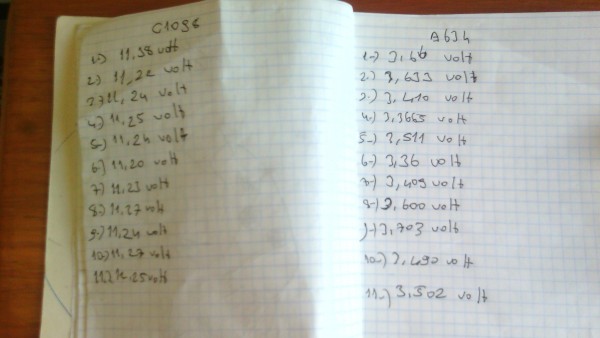 C1096
1-) 11,38 volt
2-) 11,22 volt
3-) 11,24 volt
4-) 11,25 volt
5-) 11,24 volt
6-) 11,20 volt
7-) 11,23 volt
8-) 11,27 volt
9-) 11,24 volt
10-) 11,27 volt
11-) 11,25 volt
A634
1-) 3,46 volt
2-) 3,633 volt
3-) 3,410 volt
4-) 3,3665 volt
5-) 3,511 volt
6-) 3,36 volt
7-) 3,409 volt
8-) 3,600 volt
9-) 3,703 volt
10-) 3,490 volt
11-) 3,502 volt